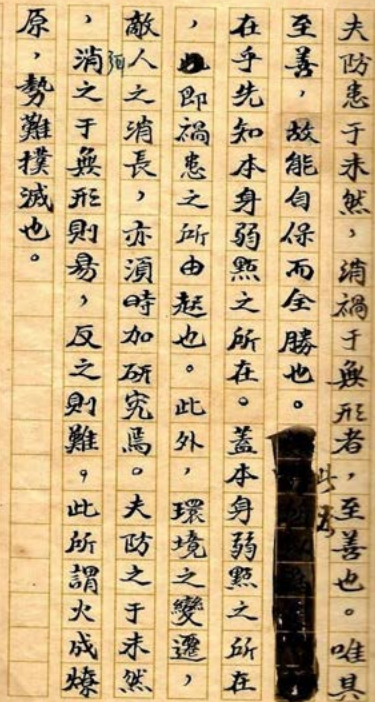 夫防患于未然，消禍于無形者，至善也。唯具
至善，故能自保而全勝也。此
在乎先知本身弱點之所在。蓋本身弱點之所在
，即禍患之所由起也。此外，環境之變遷，
敵人之消長，亦須時加研究焉。夫防之于未然
，消弭之于無形則易，反之則難。此所謂火成燎
原，勢難撲滅也。